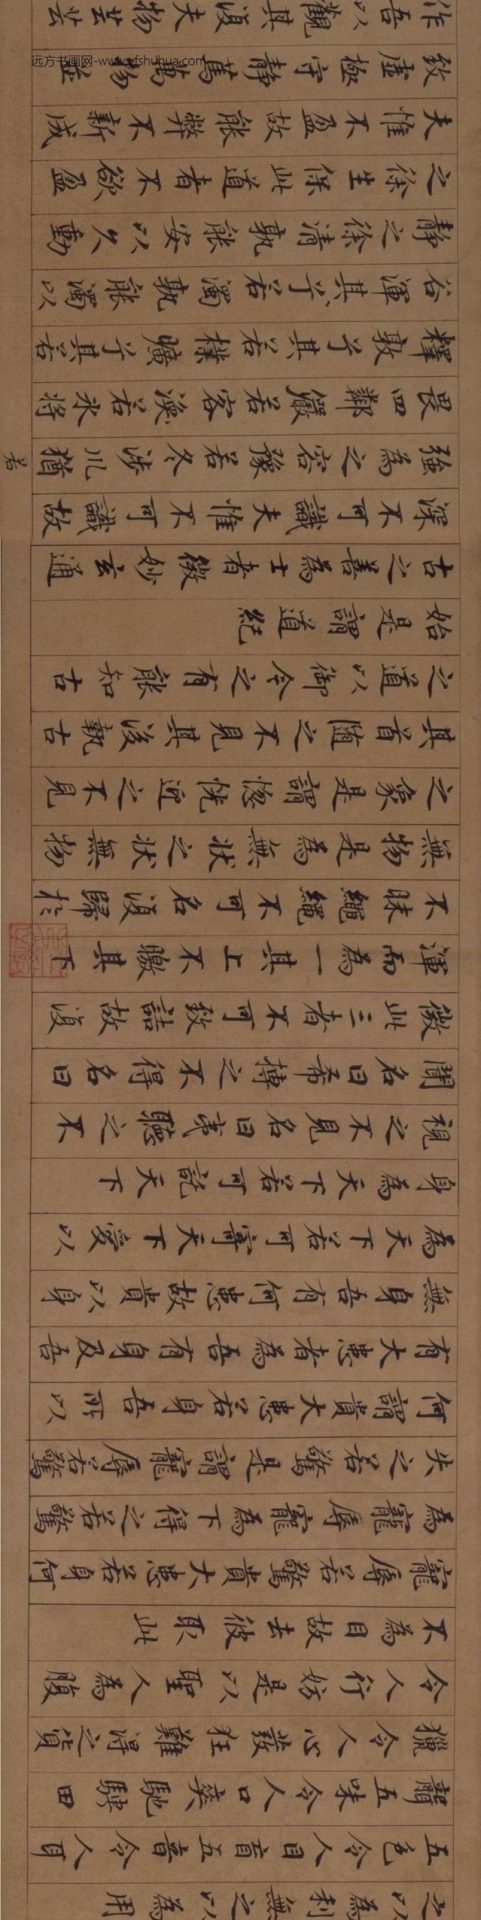 之以為利無之以為用
五色令人目盲五音令人耳
聾五味令人口爽馳騁田
獵令人心發狂難得之貨
令人行妨是以聖人為腹
不為目故去彼取此
寵辱若驚貴大患若身何
為寵辱寵為下得之若驚
失之若驚是謂寵辱若驚
何謂貴大患若身吾所以
有大患者為吾有身及吾
無身吾有何患故貴以身
為天下若可寄天下愛以
身為天下若可託天下
視之不見名曰夷聽之不
聞名曰希摶之不得名曰
微此三者不可致詰故復
渾而為一其上不皦其下
不昧繩繩不可名復歸於
無物是為無狀之狀無物
之象是謂惚恍近之不見
其首隨之不見其後執古
之道以御今之有能知古
始是謂道紀
古之善為士者微妙玄通
深不可識夫惟不可識故
強為之容豫若冬涉川猶
若
畏四鄰儼若客渙若冰將
釋敦兮其若樸曠兮其若
谷渾兮其若濁孰能濁以
靜之徐清孰能安以久動
之徐生保此道者不欲盈
夫惟不盈故能弊不新成
致虛極守靜篤萬物並
作吾以觀其復夫物芸芸
远方书画网-www.yfshuhua.com